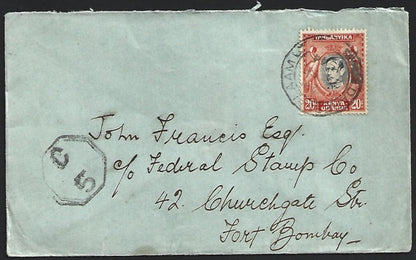 TANGANYIKA
20c
20c
KENYA
UGANDA
C
5
John Francis Esq.
c/o Federal Stamp Co
42. Churchgate Str.
Fort Bombay_